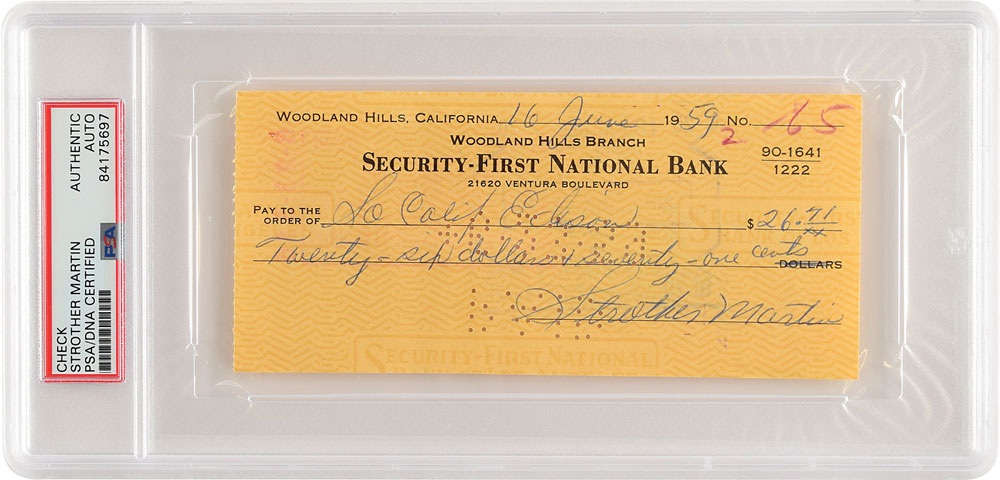 AUTHENTIC
AUTO
84175697
PSA
CHECK
STROTHER MARTIN
PSA/DNA CERTIFIED
WOODLAND HILLS, CALIFORNIA 16 June 1959 No. 165
2
WOODLAND HILLS BRANCH
SECURITY-FIRST NATIONAL BANK
90-1641
1222
21620 VENTURA BOULEVARD
PAY TO THE
ORDER OF So Calif Edison $26.71
xx
Twenty-six dollars & seventy-one cents DOLLARS
Strother Martin
SECURITY-FIRST NATIONAL